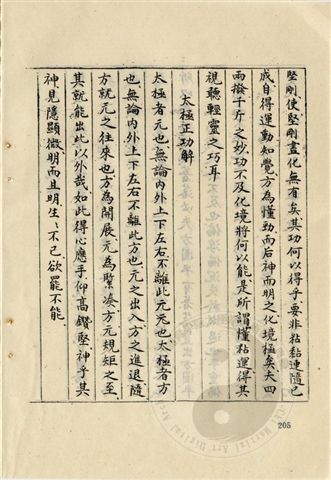 堅剛使堅剛盡化無有矣其功何以得乎要非粘黏連隨已
成自得運動知覺方為懂勁而后神而明之化境極矣夫四
兩撥千斤之妙功不及化境將何以能是所謂懂粘運得其
視聽輕靈之巧耳
太極正功解
太極者元也無論內外上下左右不離此元也太極者方
也無論內外上下左右不離此方也元之出入方之進退隨
方就元之往來也方為開展元為緊湊方元規矩之至
其就能出此以外哉如此得心應手仰高鑽堅神乎其
神見隱顯微明而且明生生不已欲罷不能
205